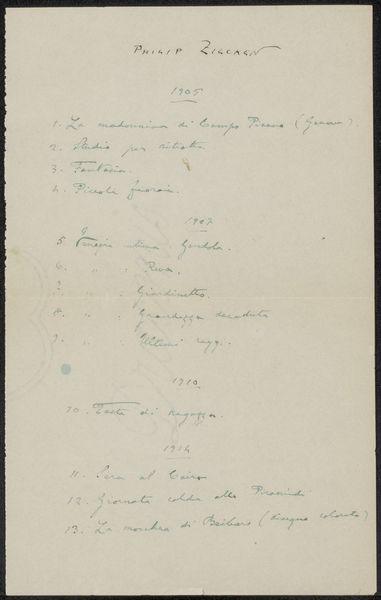 PHILIP ZILCKEN
1905
1. La madonnina di Campo Pisano (Genova).
2. Studio per ritratto
3. Fantasia.
4. Piccoli fiorai.
1907
5. Venezia intima: Gondola.
6. " " : Riva.
7. " " : Giardinetto.
8. " " : Grandezza decaduta
9. " " : Ultimi raggi.
1910
10. Testa di ragazza.
1914
11. Sera al Cairo
12. Giornata calda alle Piramidi
13. La moschea di Beibars (disegno colorato)